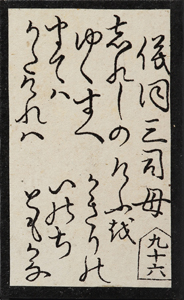 儀同三司母
わすれしの
ゆくすへ
まては
かたけれは
けふ越
かきりの
いのち
ともかな
九十六